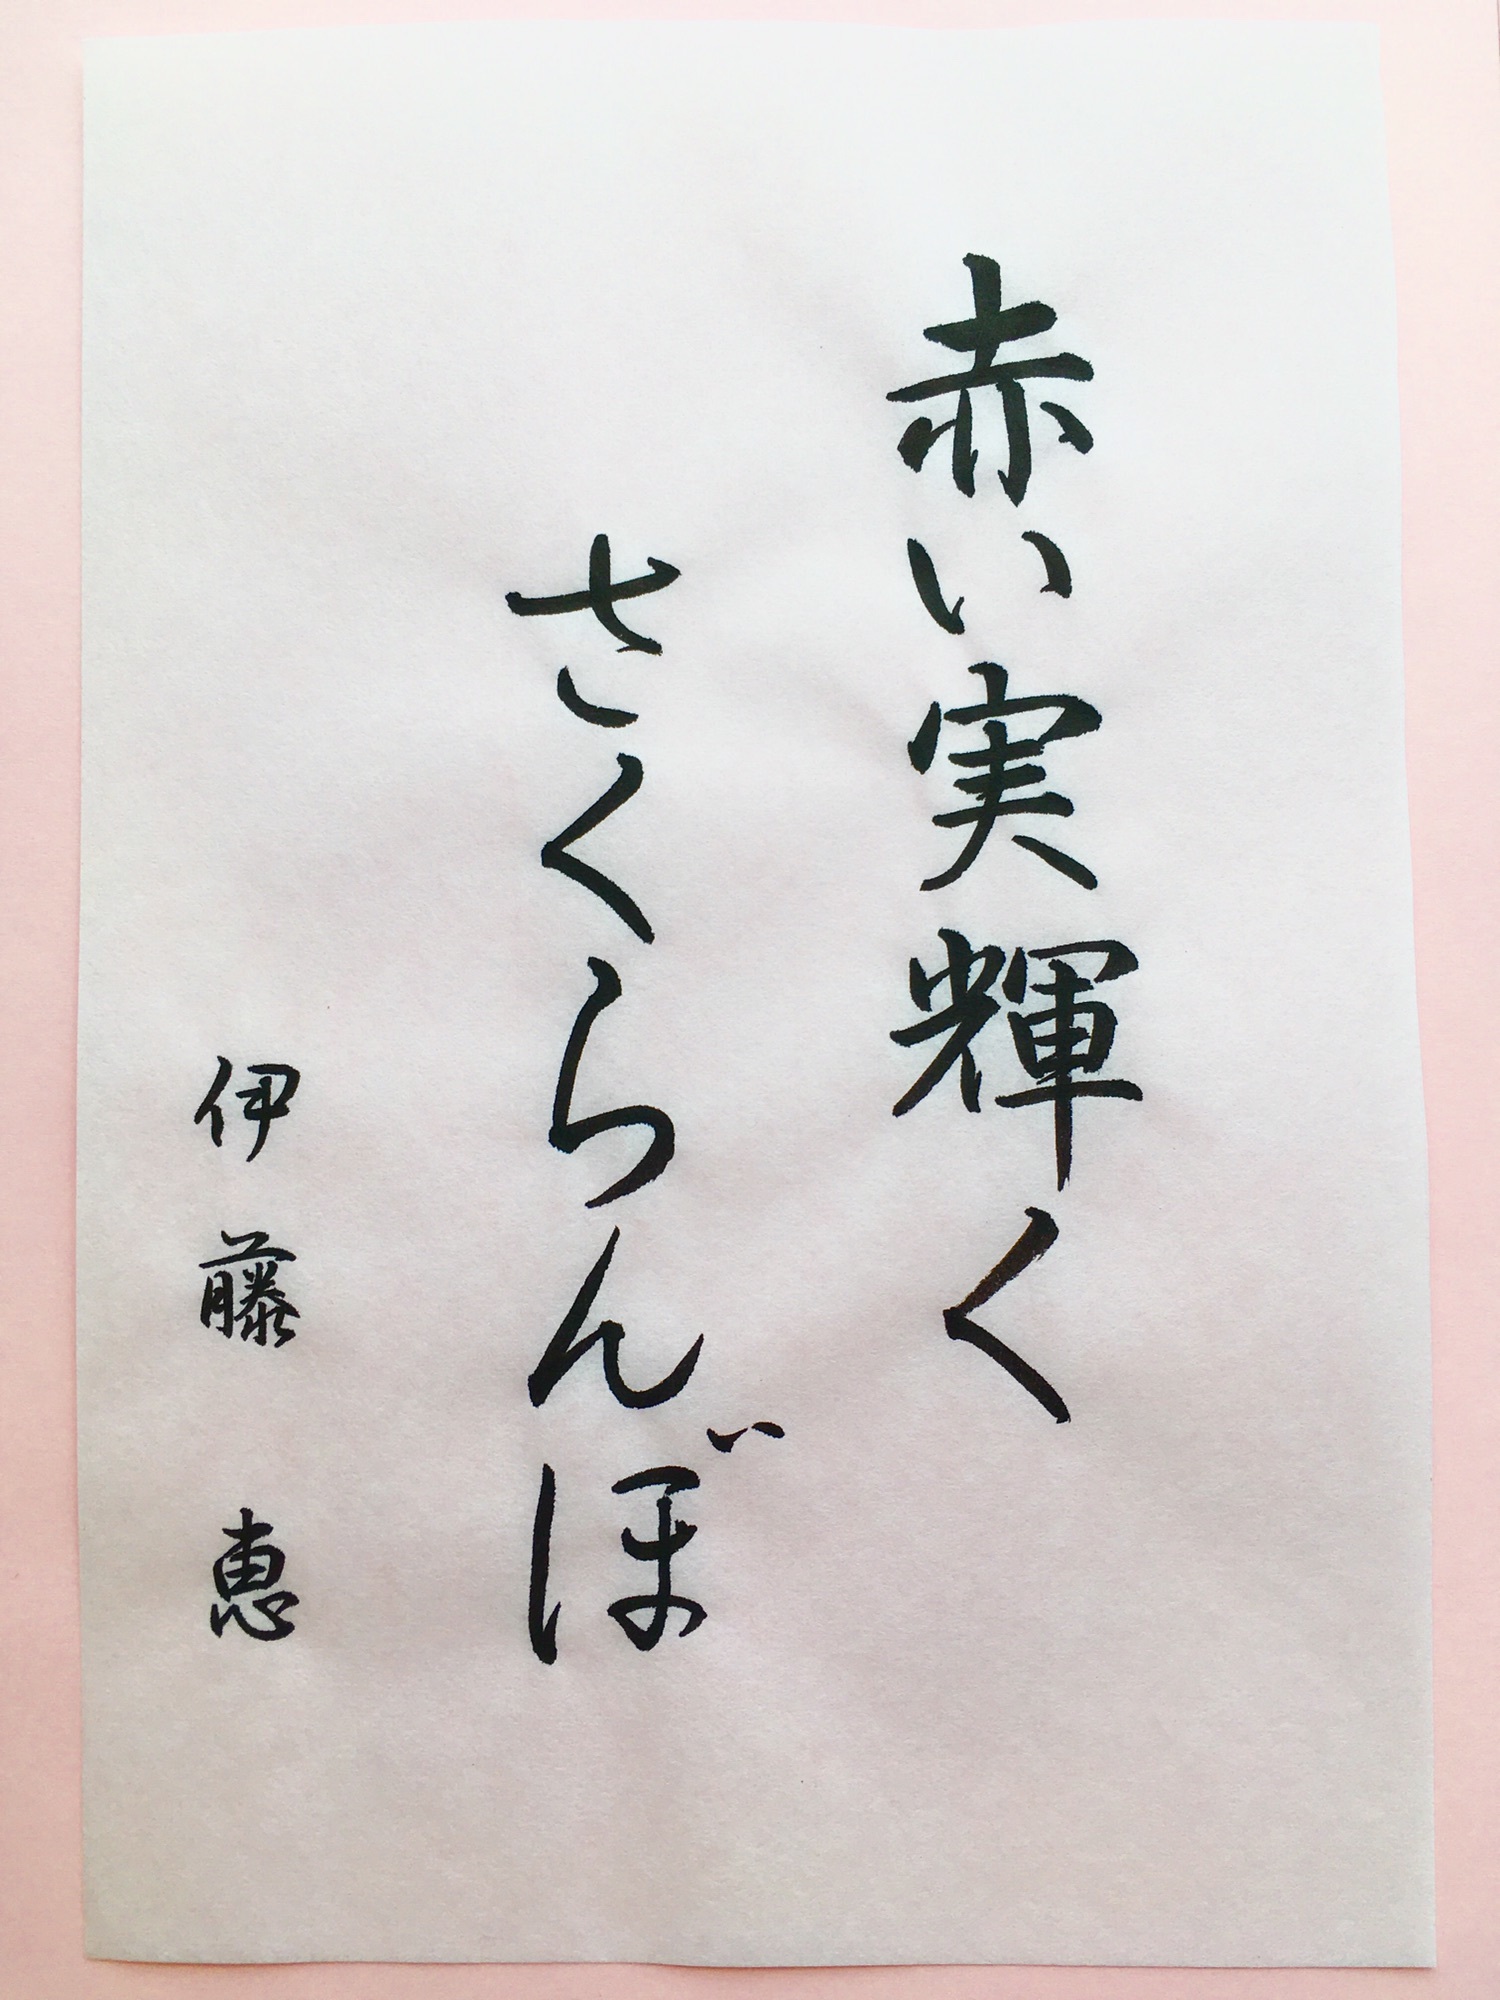 赤い実輝く
さくらんぼ
伊藤 恵